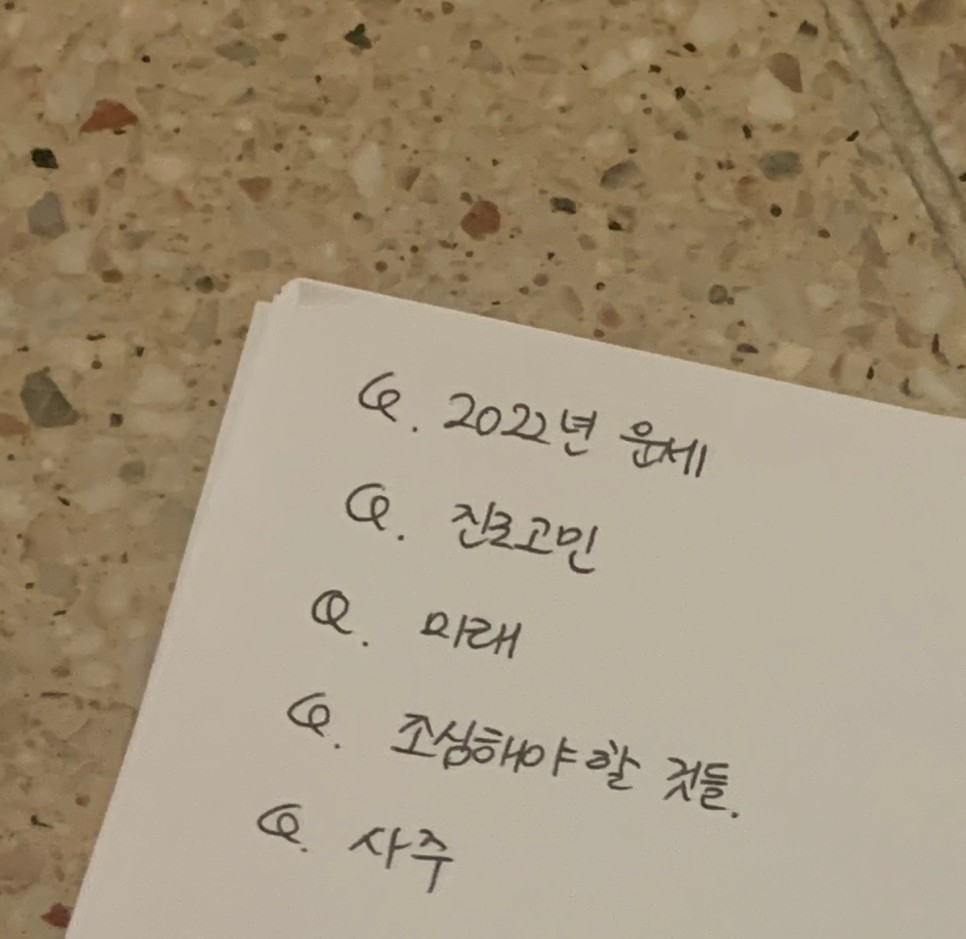 Q. 2022년 운세
Q. 진로고민
Q. 미래
Q. 조심해야 할 것들.
Q. 사주